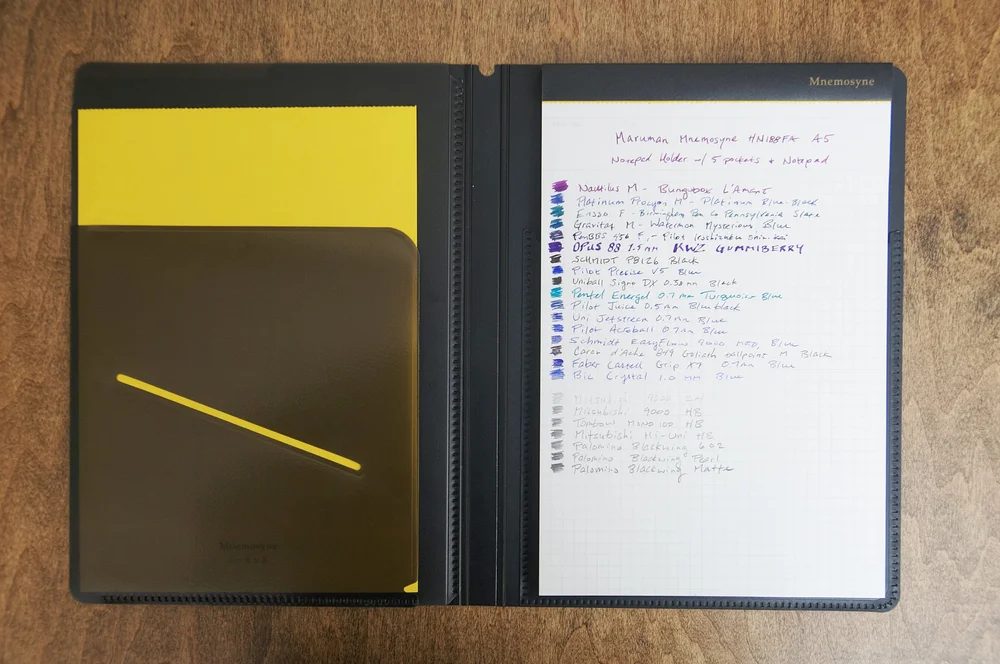 Mnemosyne
Maruman Mnemosyne HN188FA A5
Notepad Holder w/ 5 pockets + Notepad
Nautilus M - Bungubox L'Amant
Platinum Procyon M - Platinum Blue-Black
Enso F - Birmingham Pen Co Pennsylvania State
Gravitas M - Waterman Mysterious Blue
PenBBS 456 F - Pilot Iroshizuku Shin-kai
OPUS 88 1.5mm KWZ GUMMIBERRY
SCHMIDT P8126 Black
Pilot Precise V5 Blue
Uniball Signo DX 0.38mm Black
Pentel Energel 0.7mm Turquoise Blue
Pilot Juice 0.5mm Blueblack
Uni Jetstream 0.7mm Blue
Pilot Acroball 0.7mm Blue
Schmidt EasyFlow 9000 MED, Blue
Caran d'Ache 849 Goliath ballpoint M Black
Faber Castell Grip X7 0.7mm Blue
Bic Crystal 1.0 mm Blue
Mitsubishi
Mitsubishi 9000 HB
Tombow Mono 100 HB
Mitsubishi Hi-Uni HB
Palomino Blackwing 602
Palomino Blackwing Pearl
Palomino Blackwing Matte
Mnemosyne